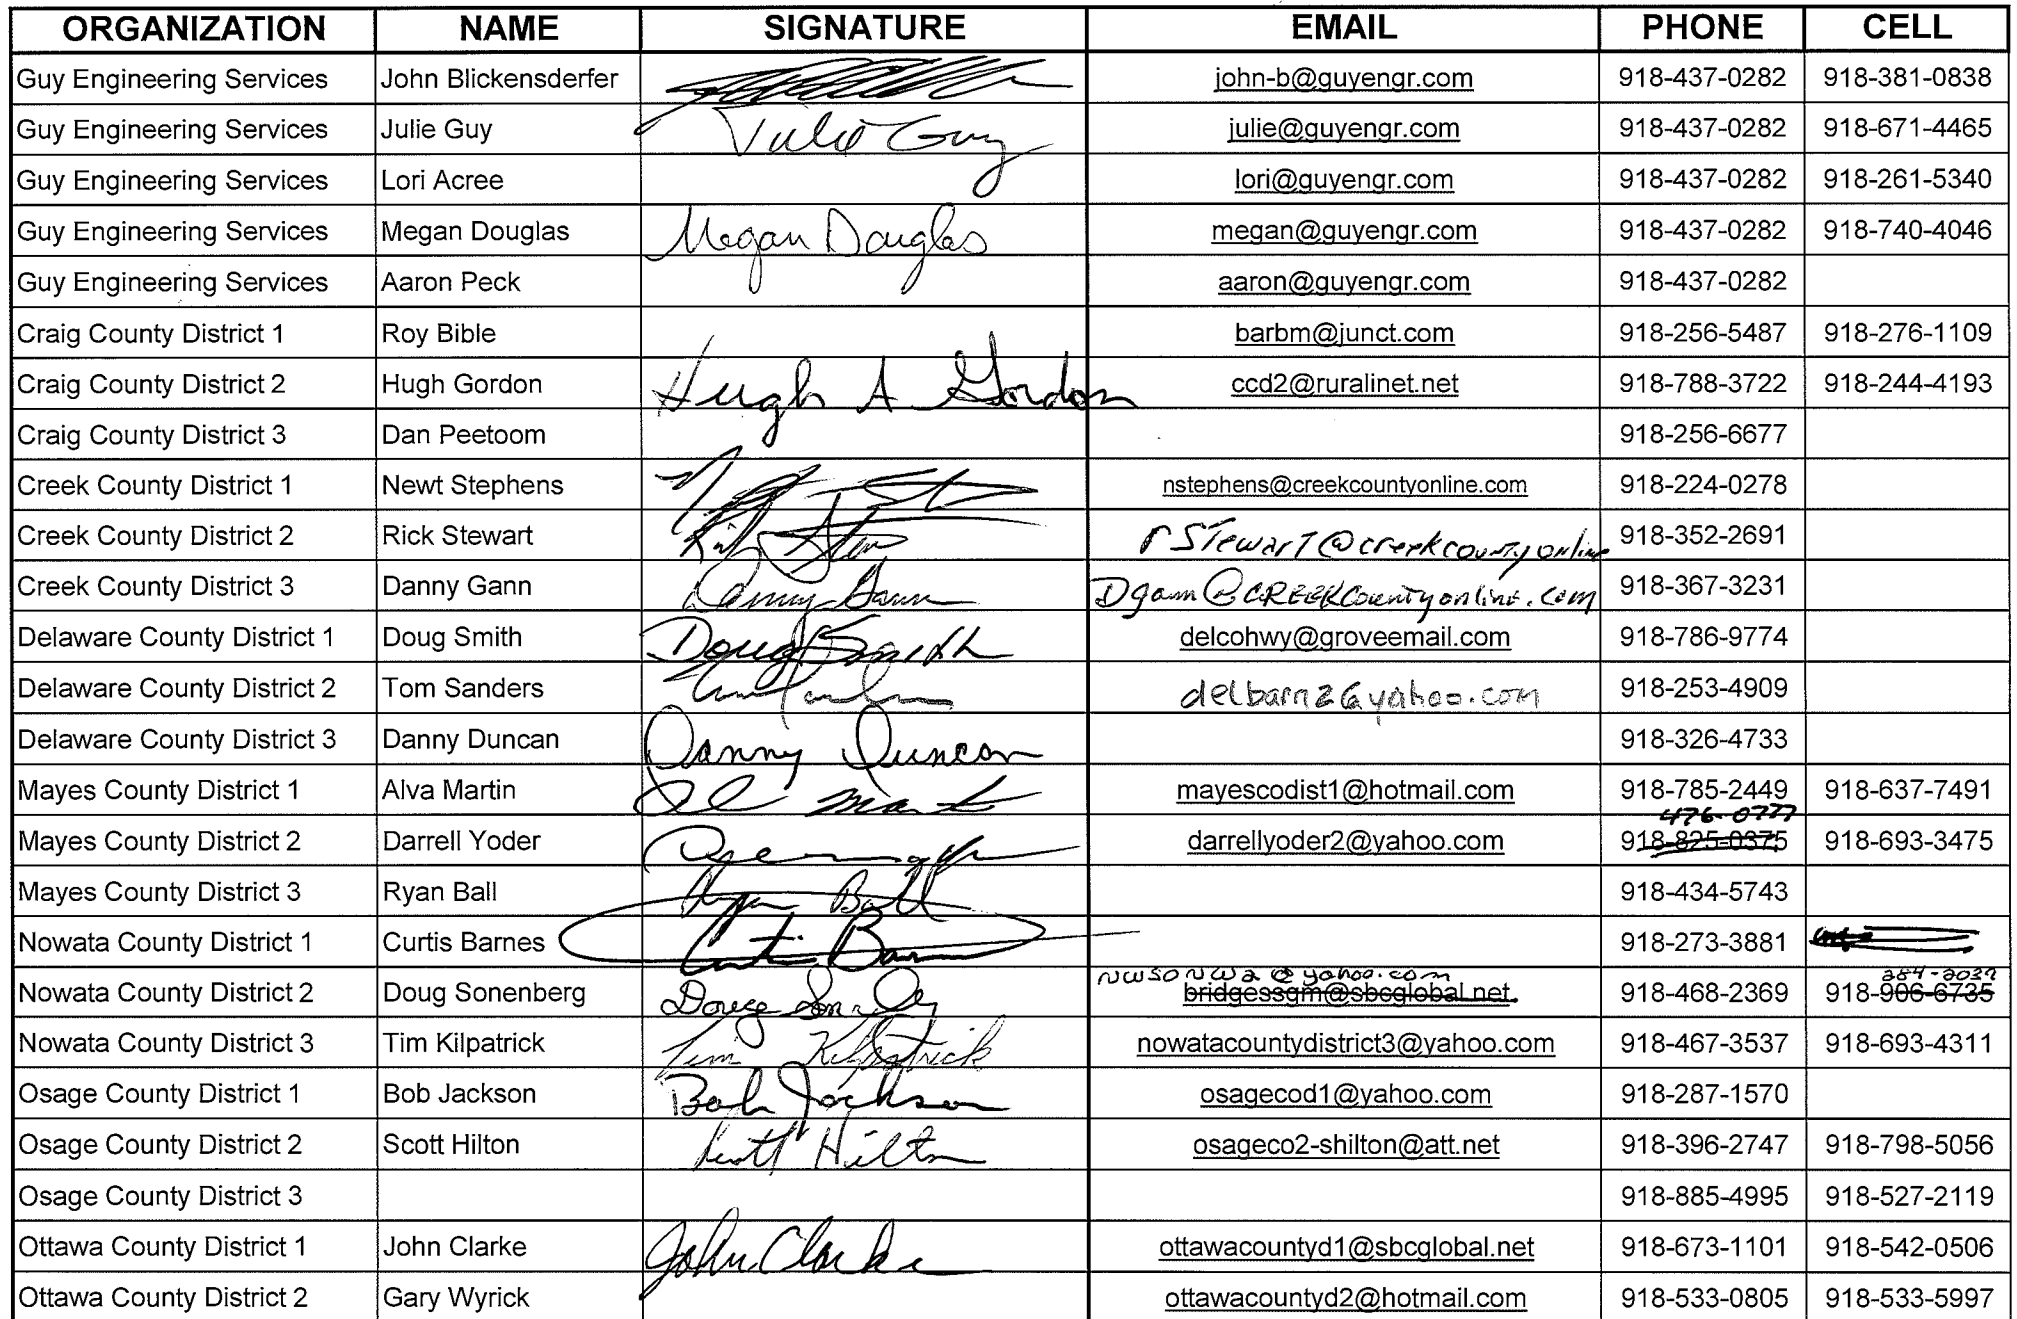 ORGANIZATION NAME SIGNATURE EMAIL PHONE CELL
Guy Engineering Services John Blickensderfer john-b@guyengr.com 918-437-0282 918-381-0838
Guy Engineering Services Julie Guy Julie Guy julie@guyengr.com 918-437-0282 918-671-4465
Guy Engineering Services Lori Acree lori@guyengr.com 918-437-0282 918-261-5340
Guy Engineering Services Megan Douglas Megan Douglas megan@guyengr.com 918-437-0282 918-740-4046
Guy Engineering Services Aaron Peck aaron@guyengr.com 918-437-0282
Craig County District 1 Roy Bible barbm@junct.com 918-256-5487 918-276-1109
Craig County District 2 Hugh Gordon Hugh A Gordon ccd2@ruralinet.net 918-788-3722 918-244-4193
Craig County District 3 Dan Peetoom 918-256-6677
Creek County District 1 Newt Stephens nstephens@creekcountyonline.com 918-224-0278
Creek County District 2 Rick Stewart rSTewarT@creekcountyonline 918-352-2691
Creek County District 3 Danny Gann Danny Gann Dgann@CREEKCountyonline.com 918-367-3231
Delaware County District 1 Doug Smith Doug Smith delcohwy@groveemail.com 918-786-9774
Delaware County District 2 Tom Sanders delbarn2@yahoo.com 918-253-4909
Delaware County District 3 Danny Duncan Danny Duncan 918-326-4733
Mayes County District 1 Alva Martin mayescodist1@hotmail.com 918-785-2449 918-637-7491
476-0777
Mayes County District 2 Darrell Yoder darrellyoder2@yahoo.com 918-825-0375 918-693-3475
Mayes County District 3 Ryan Ball Ryan Ball 918-434-5743
Nowata County District 1 Curtis Barnes 918-273-3881
nwsonwa@yahoo.com
Nowata County District 2 Doug Sonenberg bridgessgm@sbcglobal.net 918-468-2369 918-906-6735
Nowata County District 3 Tim Kilpatrick Tim Kilpatrick nowatacountydistrict3@yahoo.com 918-467-3537 918-693-4311
Osage County District 1 Bob Jackson Bob Jackson osagecod1@yahoo.com 918-287-1570
Osage County District 2 Scott Hilton Scott Hilton osageco2-shilton@att.net 918-396-2747 918-798-5056
Osage County District 3 918-885-4995 918-527-2119
Ottawa County District 1 John Clarke John Clarke ottawacountyd1@sbcglobal.net 918-673-1101 918-542-0506
Ottawa County District 2 Gary Wyrick ottawacountyd2@hotmail.com 918-533-0805 918-533-5997